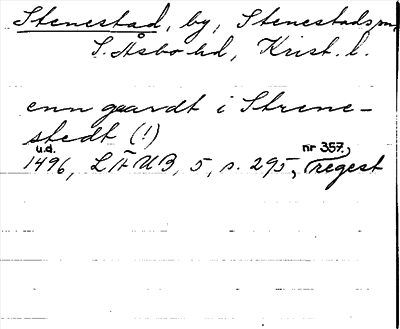 Stenestad, by, Stenestads sn,
S. Åsbo hd, Krist. l.
enn gaardt i Strene-
stedt (!)
u.d. nr 357,
1496, LÄUB, 5, s. 295, regest